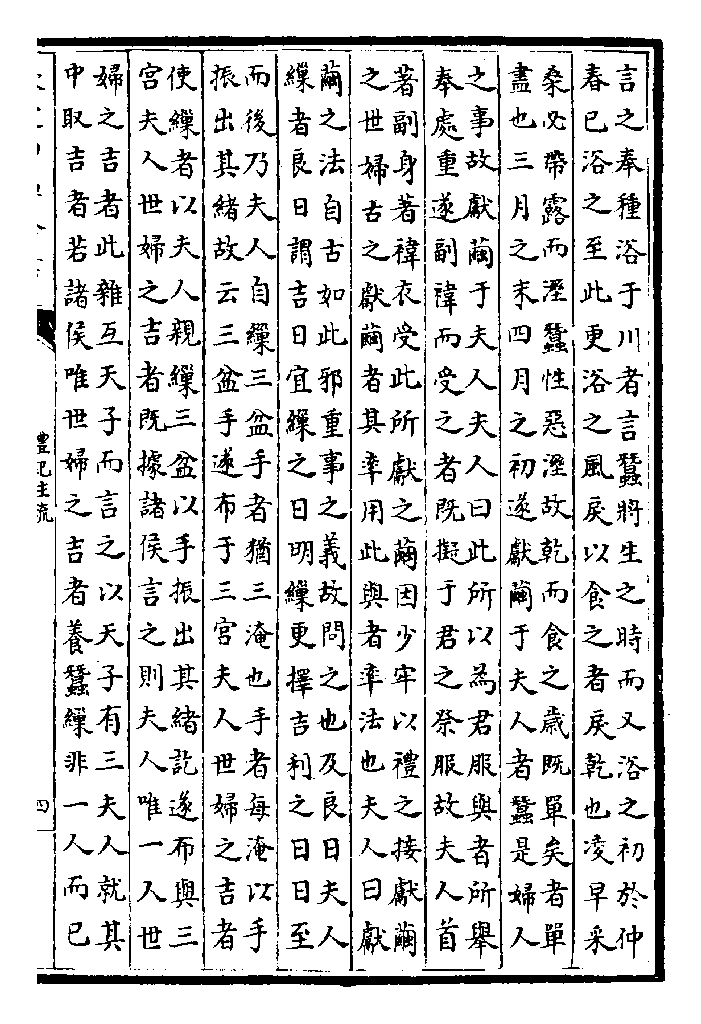 言之奉種浴于川者言蠶將生之時而又浴之初於仲
春已浴之至此更浴之風戾以食之者戾乾也凌早采
桑必帶露而溼蠶性惡溼故乾而食之歲既單矣者單
盡也三月之末四月之初遂獻繭于夫人者蠶是婦人
之事故獻繭于夫人夫人曰此所以為君服與者所舉
奉處重遂副褘而受之者既擬于君之祭服故夫人首
著副身著褘衣受此所獻之繭因少牢以禮之接獻繭
之世婦古之獻繭者其率用此與者率法也夫人曰獻
繭之法自古如此邪重事之義故問之也及良日夫人
繅者良日謂吉日宜繅之日明繅更擇吉利之日日至
而後乃夫人自繅三盆手者猶三淹也手者每淹以手
振出其緒故云三盆手遂布于三宮夫人世婦之吉者
使繅者以夫人親繅三盆以手振出其緒訖遂布與三
宮夫人世婦之吉者既據諸侯言之則夫人唯一人世
婦之吉者此雜互天子而言之以天子有三夫人就其
中取吉者若諸侯唯世婦之吉者養蠶繅非一人而已
禮記注疏
四